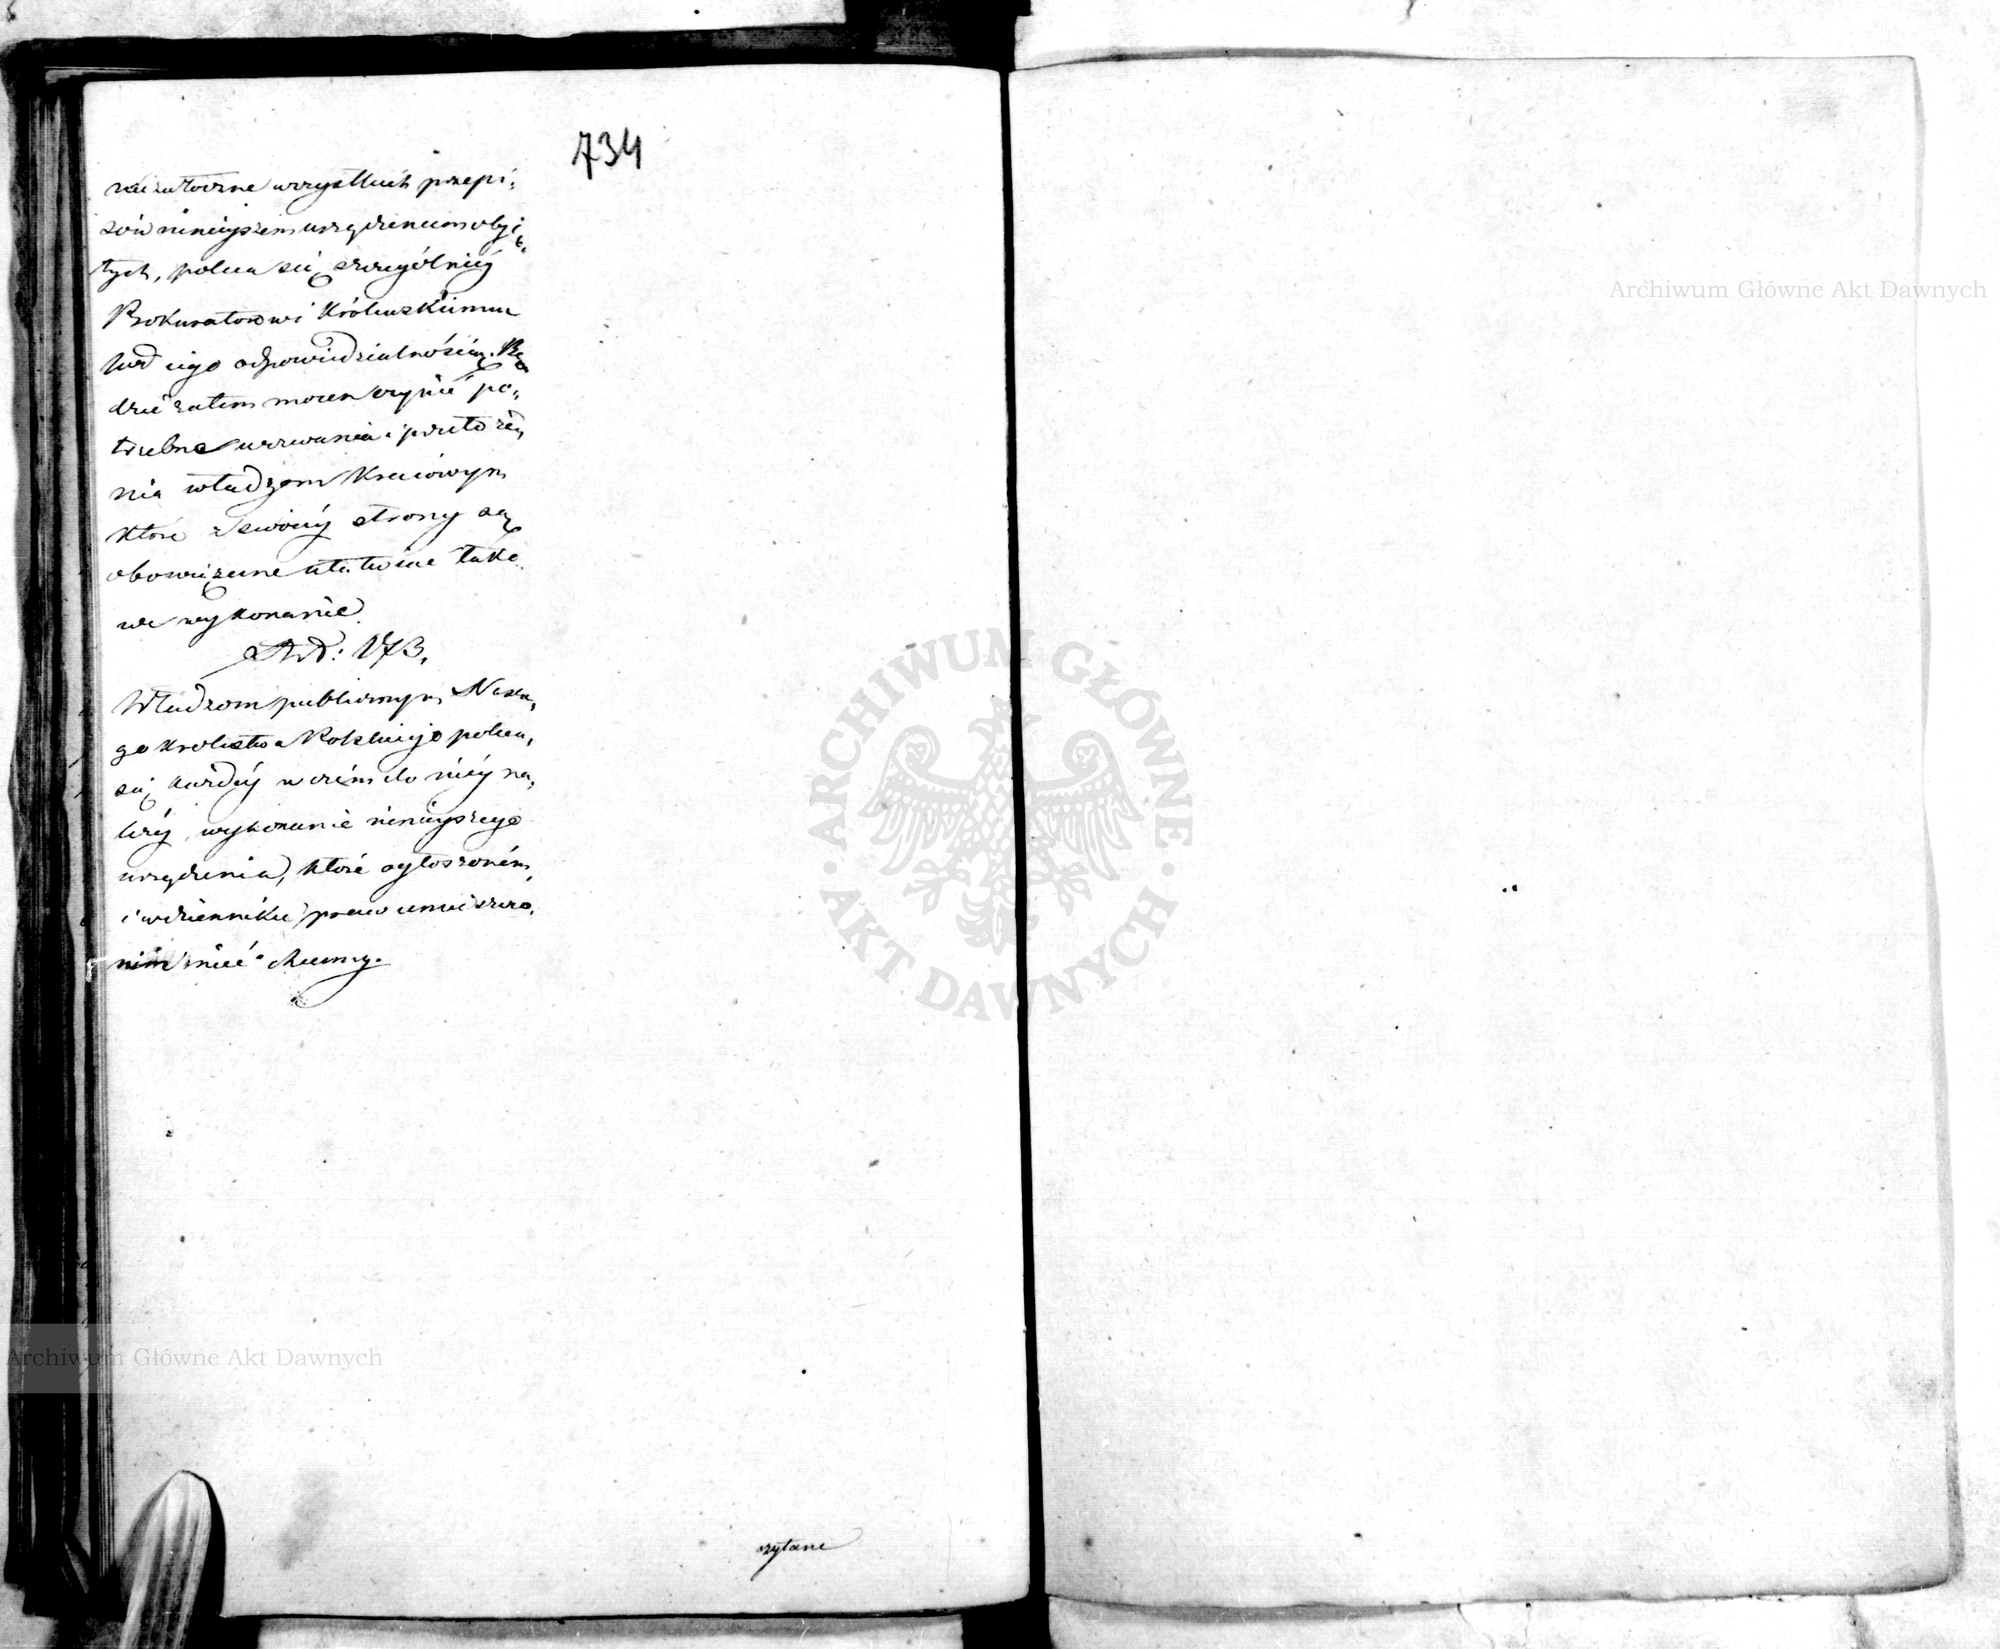 734
niezwłoczne wszystkich przepi-
sów ninieyszem urządzeniem obję-
tych, poleca się szczególniéy
Prokuratorowi Królewskiemu
pod iego odpowiedzialnością. Bę-
dzie zatem mocen czynić po-
trzebne wezwania i przełoże-
nia władzom Kraiowym
które z swoiéy strony są
obowiązane ułatwiać tako-
we wykonanie.
Art: 173.
Władzom publicznym Nasze-
go Królestwa Polskiego poleca-
się każdéy w czém do niéy na-
leży, wykonanie ninieyszego
urządzenia, które ogłoszoném
i w dzienniku praw umieszczo-
nim mieć chcemy.
czytane
Archiwum Główne Akt Dawnych
ARCHIWUM GŁÓWNE AKT DAWNYCH
Archiwum Główne Akt Dawnych